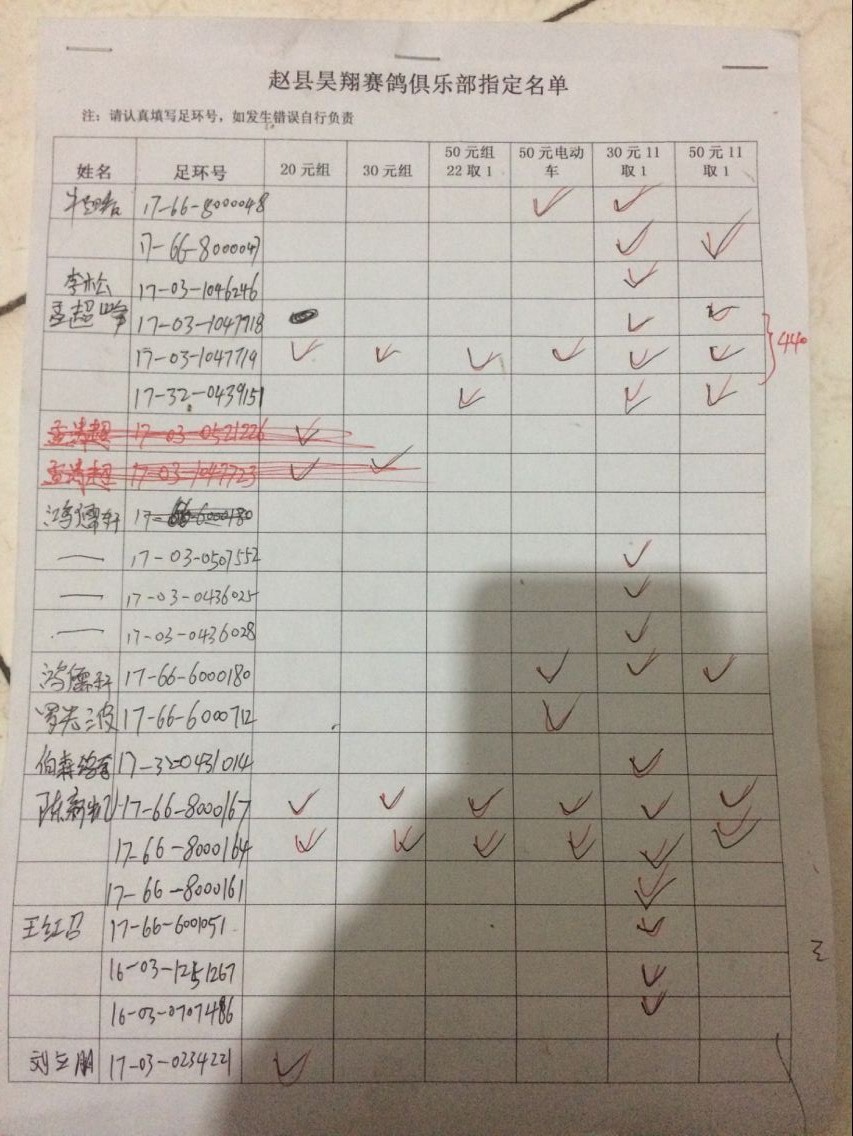 赵县昊翔赛鸽俱乐部指定名单
注：请认真填写足环号，如发生错误自行负责
姓名 足环号 20元组 30元组 50元组22取1 50元电动车 30元11取1 50元11取1
17-66-8000048 ✓ ✓
17-66-8000047 ✓ ✓
李松 17-03-1046246 ✓
孟超 17-03-1047718 ✓ ✓
17-03-1047719 ✓ ✓ ✓ ✓ ✓ ✓ 440
17-32-0439151 ✓ ✓ ✓
孟涛超 17-03-0521226 ✓
孟涛超 17-03-1047723 ✓ ✓
鸿儒轩 17-66-6000180
— 17-03-0507552 ✓
— 17-03-0436025 ✓
— 17-03-0436028 ✓
鸿儒轩 17-66-6000180 ✓ ✓ ✓
罗先波 17-66-6000712 ✓
伯森鸽舍 17-32-0431014 ✓
陈 17-66-8000167 ✓ ✓ ✓ ✓ ✓ ✓
17-66-8000164 ✓ ✓ ✓ ✓ ✓ ✓
17-66-8000161 ✓
王红召 17-66-6001051 ✓
16-03-1251267 ✓
16-03-0707486 ✓
刘立朋 17-03-0234221 ✓